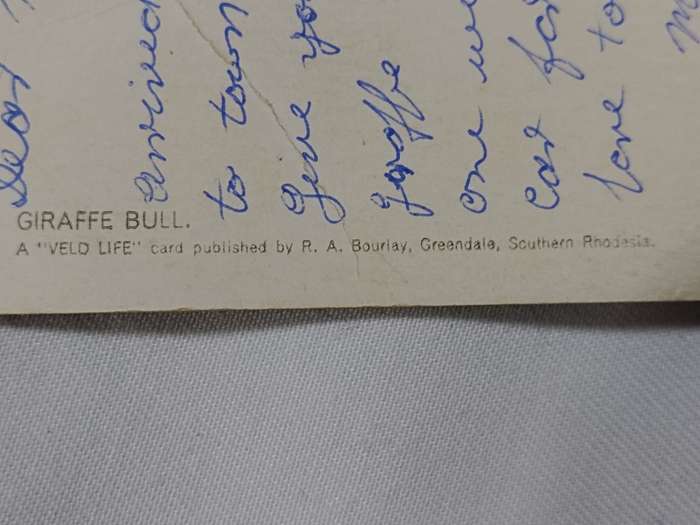 Dear
arrived
to town
Give yo
giraffe
one we
car for
love to
GIRAFFE BULL.
A "VELD LIFE" card published by R. A. Bourlay, Greendale, Southern Rhodesia.